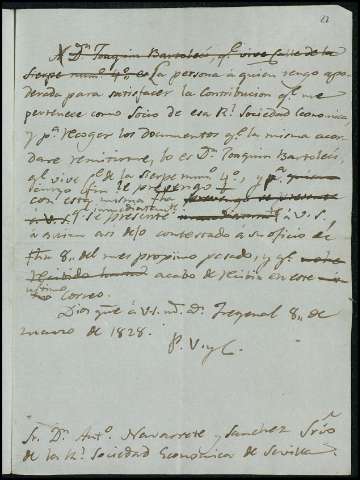 A Dⁿ Joaquin Bartoleśi, q.ᵉ vive Calle de la
Sierpe num.º 4,º es la persona à quien tengo apo-
derada para satisfacer la contribucion q.ᵉ me
pertenece como Socio de esa R.ˡ Sociedad Economica,
y p.ª recoger los documentos q.ᵉ la misma acor-
dare remitirme, lo es Dⁿ Joaquin
q.ᵉ vive c.ᵉ de la Sierpe num.º 4º, y p.ª
con esta misma fha
à V.S. se presente à V. S.,
así dejo contestado à su oficio de
fha 8,, del mes proximo pasado, y q.ᵉ
recibido acabo de recibir en este
ultimo correo.
Dios gue à VS. m.ˢ a.ˢ Fregenal 8,, de
marzo de 1828.
P. V. y C.
Sr. Dⁿ Ant.º Navarrete y Sanchez Srio
de la R.ˡ Sociedad Económica de Sevilla.